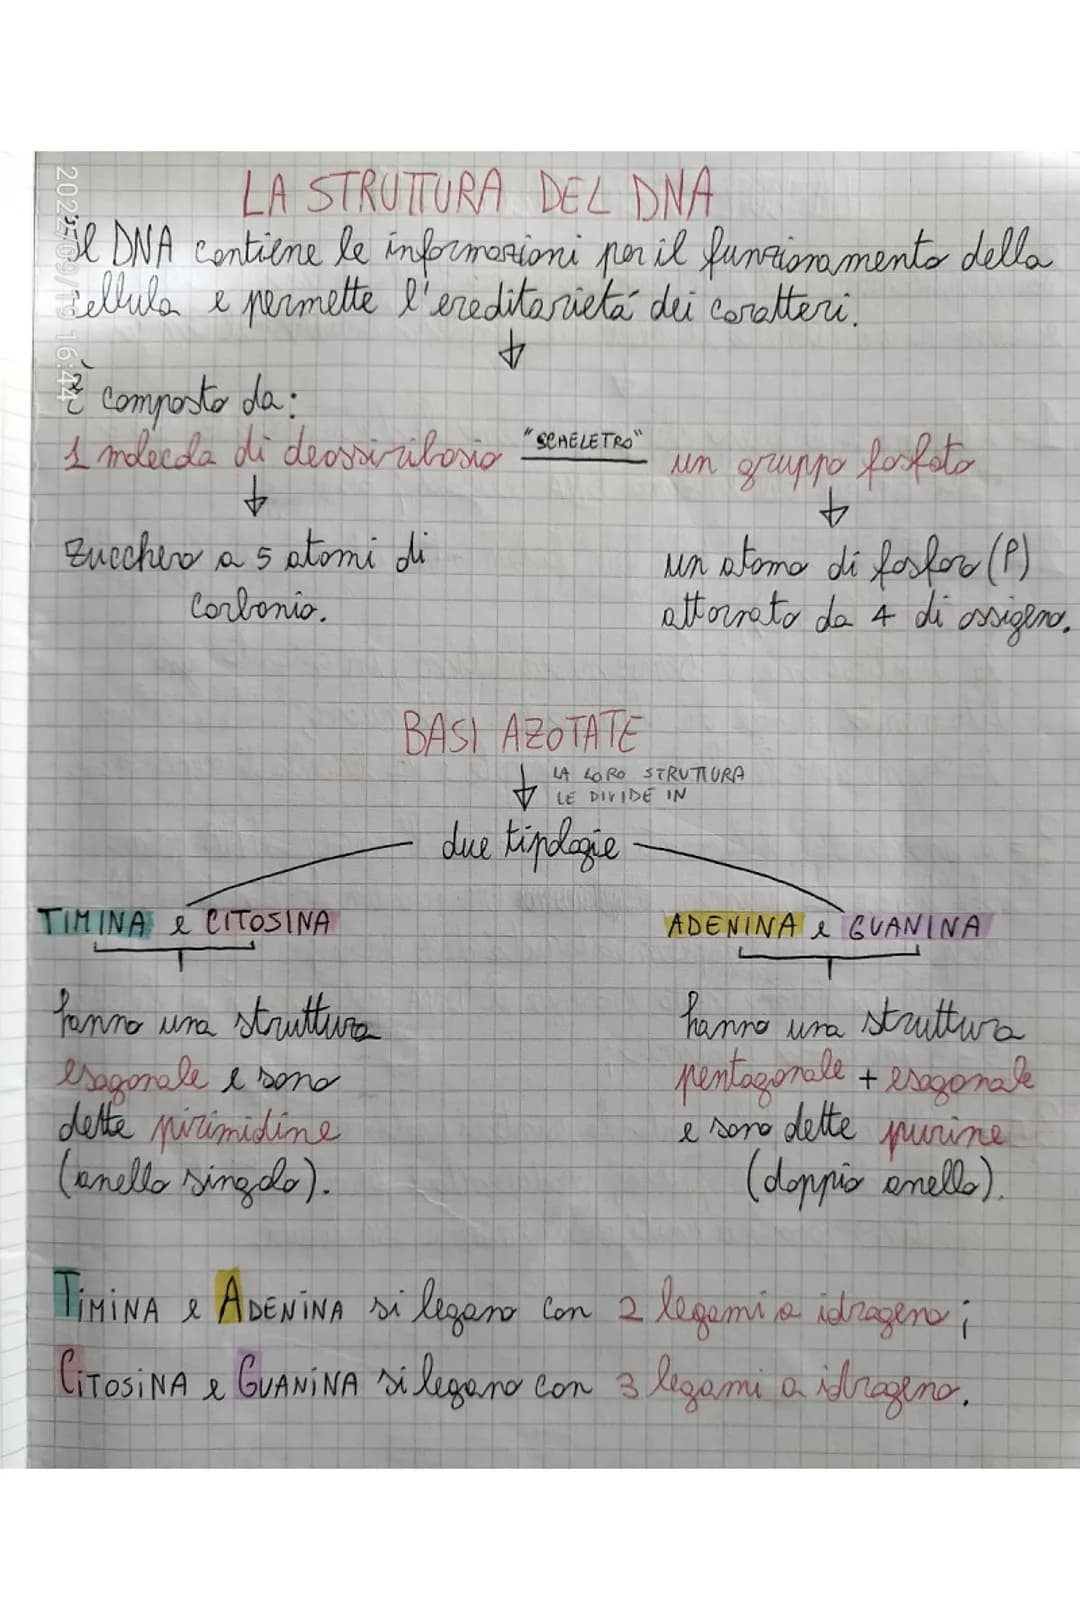 2022/09/19 16:44
LA STRUTTURA DEL DNA
Il DNA contiene le informazioni per il funzionamento della
cellula e permette l'ereditarietá dei caratteri.
È composto da:
1 molecola di deossiribosio "SCHELETRO" un gruppo fosfato
Zucchero a 5 atomi di
carbonio.
un atomo di fosforo (P)
attorniato da 4 di ossigeno.
BASI AZOTATE
LA LORO STRUTTURA
LE DIVIDE IN
due tipologie
TIMINA e CITOSINA
ADENINA e GUANINA
hanno una struttura
esagonale e sono
dette pirimidine
(anello singolo).
hanno una struttura
pentagonale + esagonale
e sono dette purine
(doppio anello).
TIMINA e ADENINA si legano con 2 legami a idrogeno;
CITOSINA e GUANINA si legano con 3 legami a idrogeno.